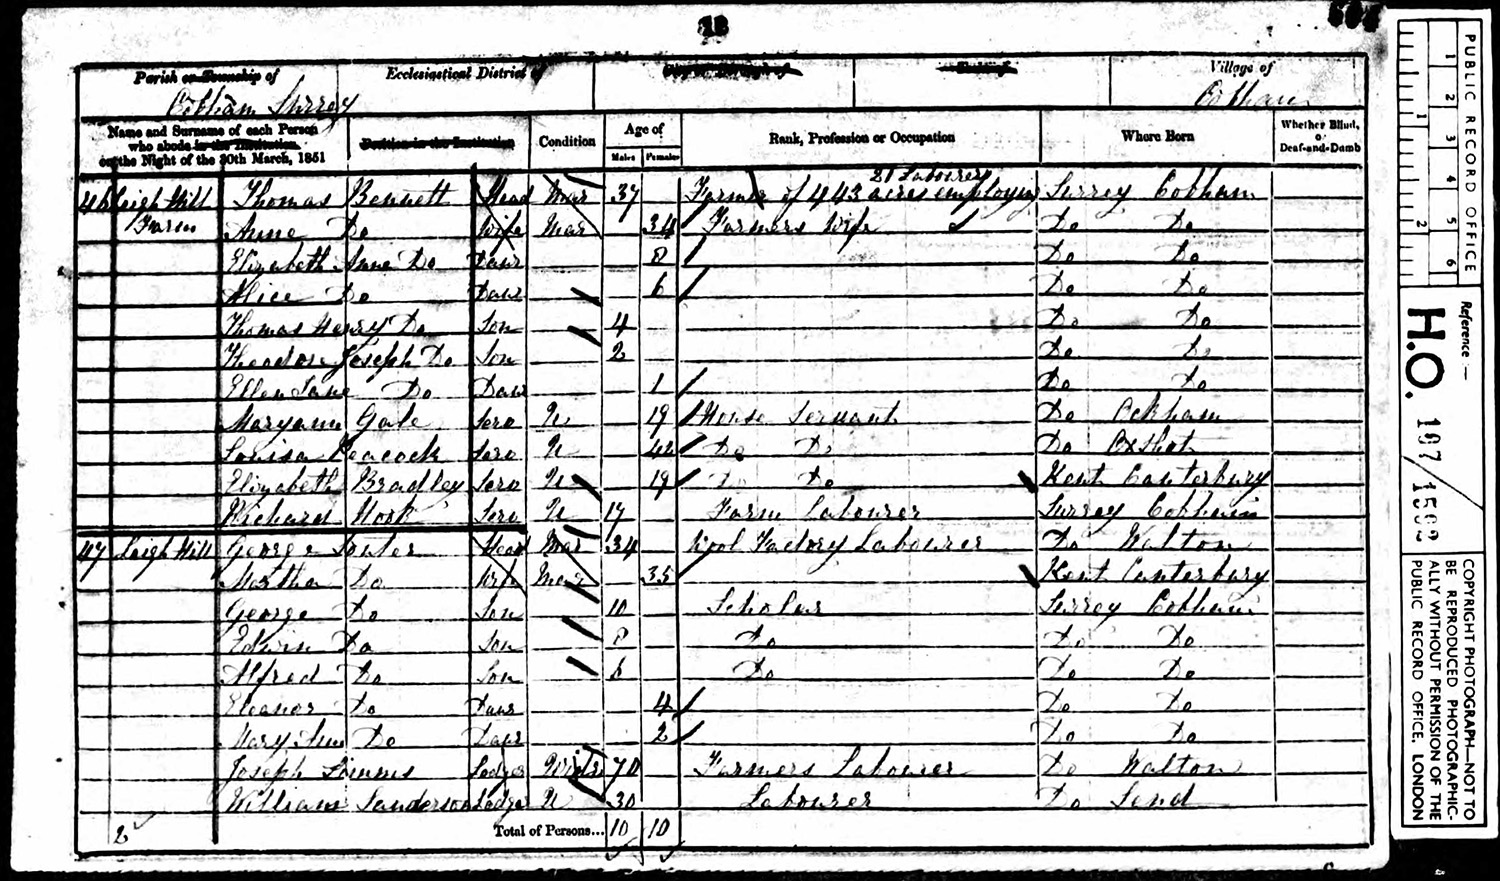 18
Parish or Township of Ecclesiastical District of City or Borough of Town of Village of
Cobham Surrey Cobham
Name and Surname of each Person who abode in the Institution, on the Night of the 30th March, 1851 Position in the Institution Condition Age of Males Females Rank, Profession or Occupation Where Born Whether Blind, or Deaf-and-Dumb
46 Leigh Hill Thomas Bennett Head Mar 37 Farmer of 443 acres employing Labourers Surrey Cobham
Farm Anne Do Wife Mar 34 Farmers Wife Do Do
Elizabeth Anne Do Daur 8 Do Do
Alice Do Daur 6 Do Do
Thomas Henry Do Son 4 Do Do
Theodore Joseph Do Son 2 Do Do
Ellen Jane Do Daur 1 Do Do
Maryann Gale Serv U 19 House Servant Do Ockham
Louisa Peacock Serv U 42 Do Do Do Oxshot
Elizabeth Bradley Serv U 19 Do Do Kent Canterbury
Richard Serv U 17 Farm Labourer Surrey Cobham
47 Leigh Hill George Head Mar 34 Wool Factory Labourer Do Walton
Martha Do Wife Mar 35 Kent Canterbury
George Do Son 10 Scholar Surrey Cobham
Edwin Do Son 8 Do Do Do
Alfred Do Son 6 Do Do Do
Eleanor Do Daur 4 Do Do
Mary Ann Do Daur 2 Do Do
Joseph Simms Lodger Widr 70 Farmers Labourer Do Walton
William Sanderson Lodger U 30 Labourer Do Send
2 Total of Persons... 10 10
PUBLIC RECORD OFFICE
1 2 3 4 5 6
1 2
Reference:—
H.O. 107/1593
COPYRIGHT PHOTOGRAPH—NOT TO
BE REPRODUCED PHOTOGRAPHIC-
ALLY WITHOUT PERMISSION OF THE
PUBLIC RECORD OFFICE, LONDON